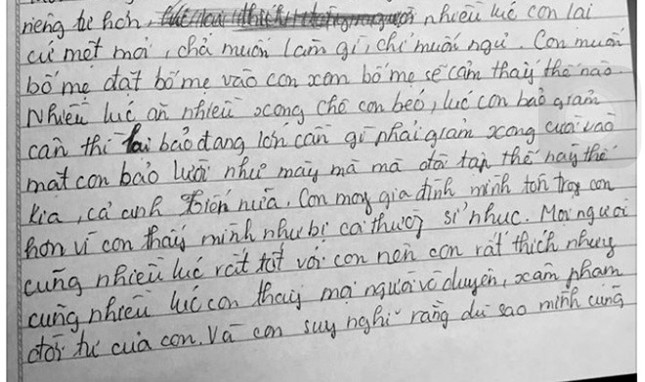 riêng tư hơn, nhiều lúc con lại
cứ mệt mỏi, chả muốn làm gì, chỉ muốn ngủ. Con muốn
bố mẹ đặt bố mẹ vào con xem bố mẹ sẽ cảm thấy thế nào.
Nhiều lúc ăn nhiều xong chê con béo, lúc con bảo giảm
cân thì lại bảo đang lớn cần gì phải giảm xong cười vào
mặt con bảo lười như mày mà mà đòi tập thế này thế
kia, cả anh Biên nữa. Con mong gia đình mình tôn trọng con
hơn vì con thấy mình như bị cả thường sỉ nhục. Mọi người
cũng nhiều lúc rất tốt với con nên con rất thích nhưng
cũng nhiều lúc con thấy mọi người vô duyên, xâm phạm
đời tư của con. Và con suy nghĩ rằng dù sao mình cũng